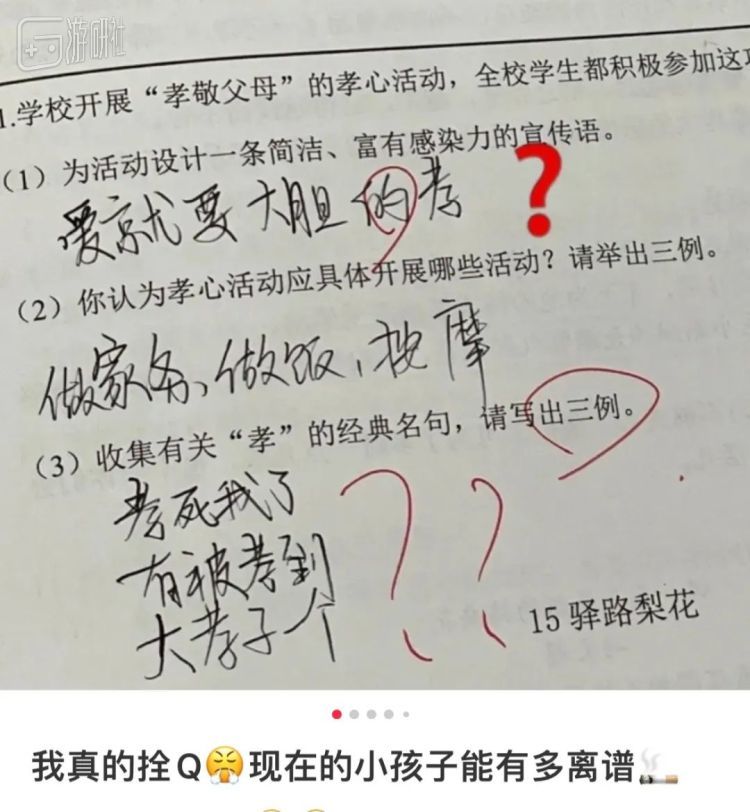 游研社
1.学校开展“孝敬父母”的孝心活动，全校学生都积极参加这
（1）为活动设计一条简洁、富有感染力的宣传语。
爱就要大胆的孝
（2）你认为孝心活动应具体开展哪些活动？请举出三例。
做家务、做饭，按摩
（3）收集有关“孝”的经典名句，请写出三例。
孝死我了
有被孝到
大孝子一个
15 驿路梨花
我真的拴Q😤现在的小孩子能有多离谱🚬